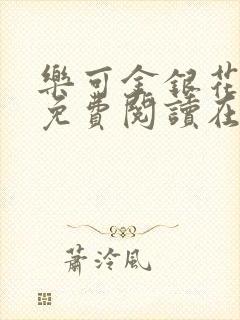 樂可金銀花
免費閱讀在
蕭泠風